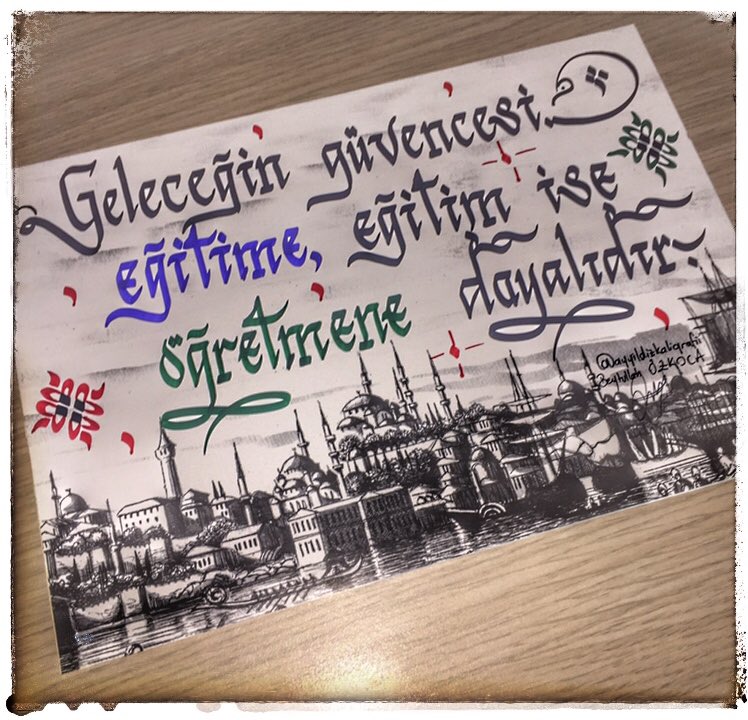 Geleceğin güvencesi,
eğitime, eğitim ise
öğretmene dayalıdır.
@ayyildizkaligrafi
Beytullah ÖZKOCA